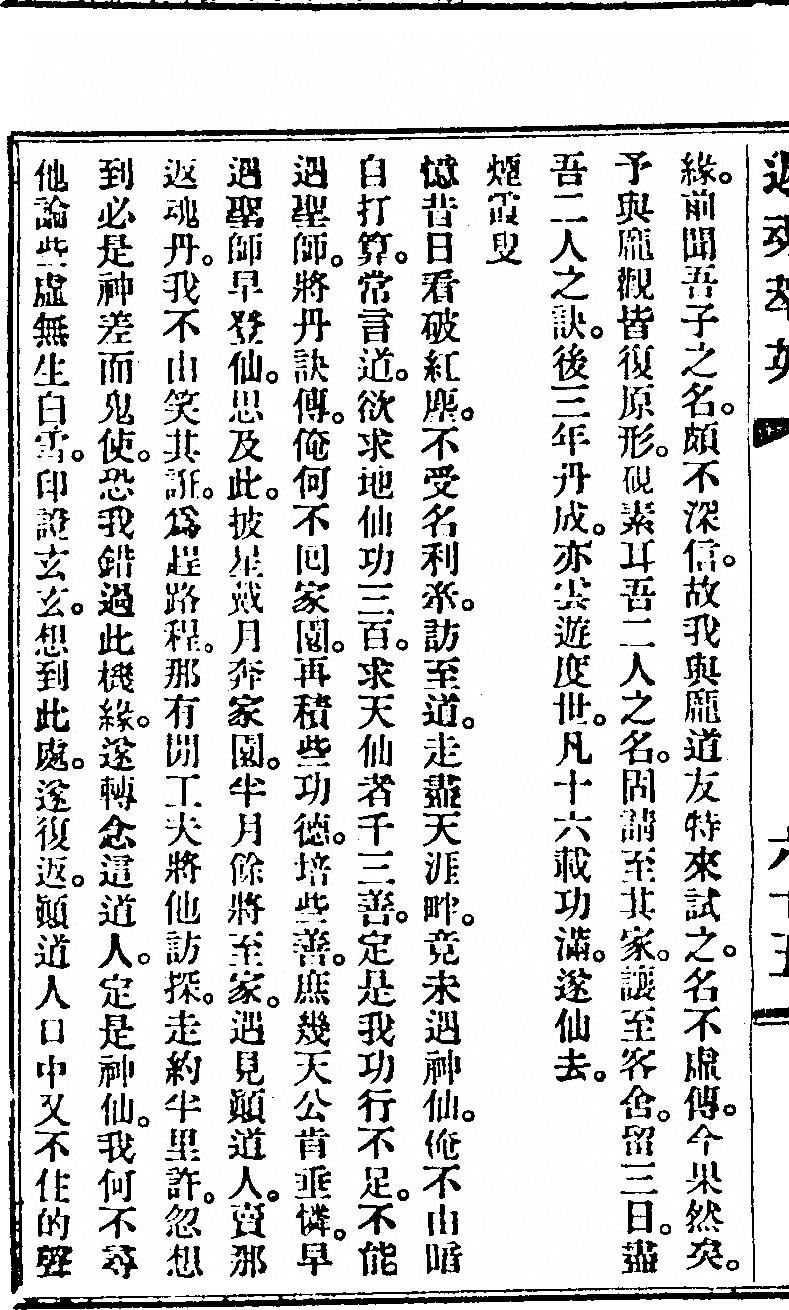 緣。前聞吾子之名。頗不深信。故我與龐道友特來試之。名不虛傳。今果然矣。
予與龐觀皆復原形。硯素耳吾二人之名。固請至其家。讓至客舍。留三日。盡
吾二人之訣。後三年丹成。亦雲遊度世。凡十六載功滿。遂仙去。
煙霞叟
憶昔日看破紅塵。不受名利牽。訪至道。走盡天涯畔。竟未遇神仙。俺不由暗
自打算。常言道。欲求地仙功三百。求天仙者千三善。定是我功行不足。不能
遇聖師。將丹訣傳。俺何不回家園。再積些功德。培些善。庶幾天公肯垂憐。早
遇聖師早登仙。思及此。披星戴月奔家園。半月餘將至家。遇見顛道人。賣那
返魂丹。我不由笑其誑。為趕路程。那有閒工夫將他訪探。走約半里許。忽想
到必是神差而鬼使。恐我錯過此機緣。遂轉念這道人。定是神仙。我何不尋
他論些虛無生白雪。印證玄玄。想到此處。遂復返。顛道人口中又不住的聲
六十五